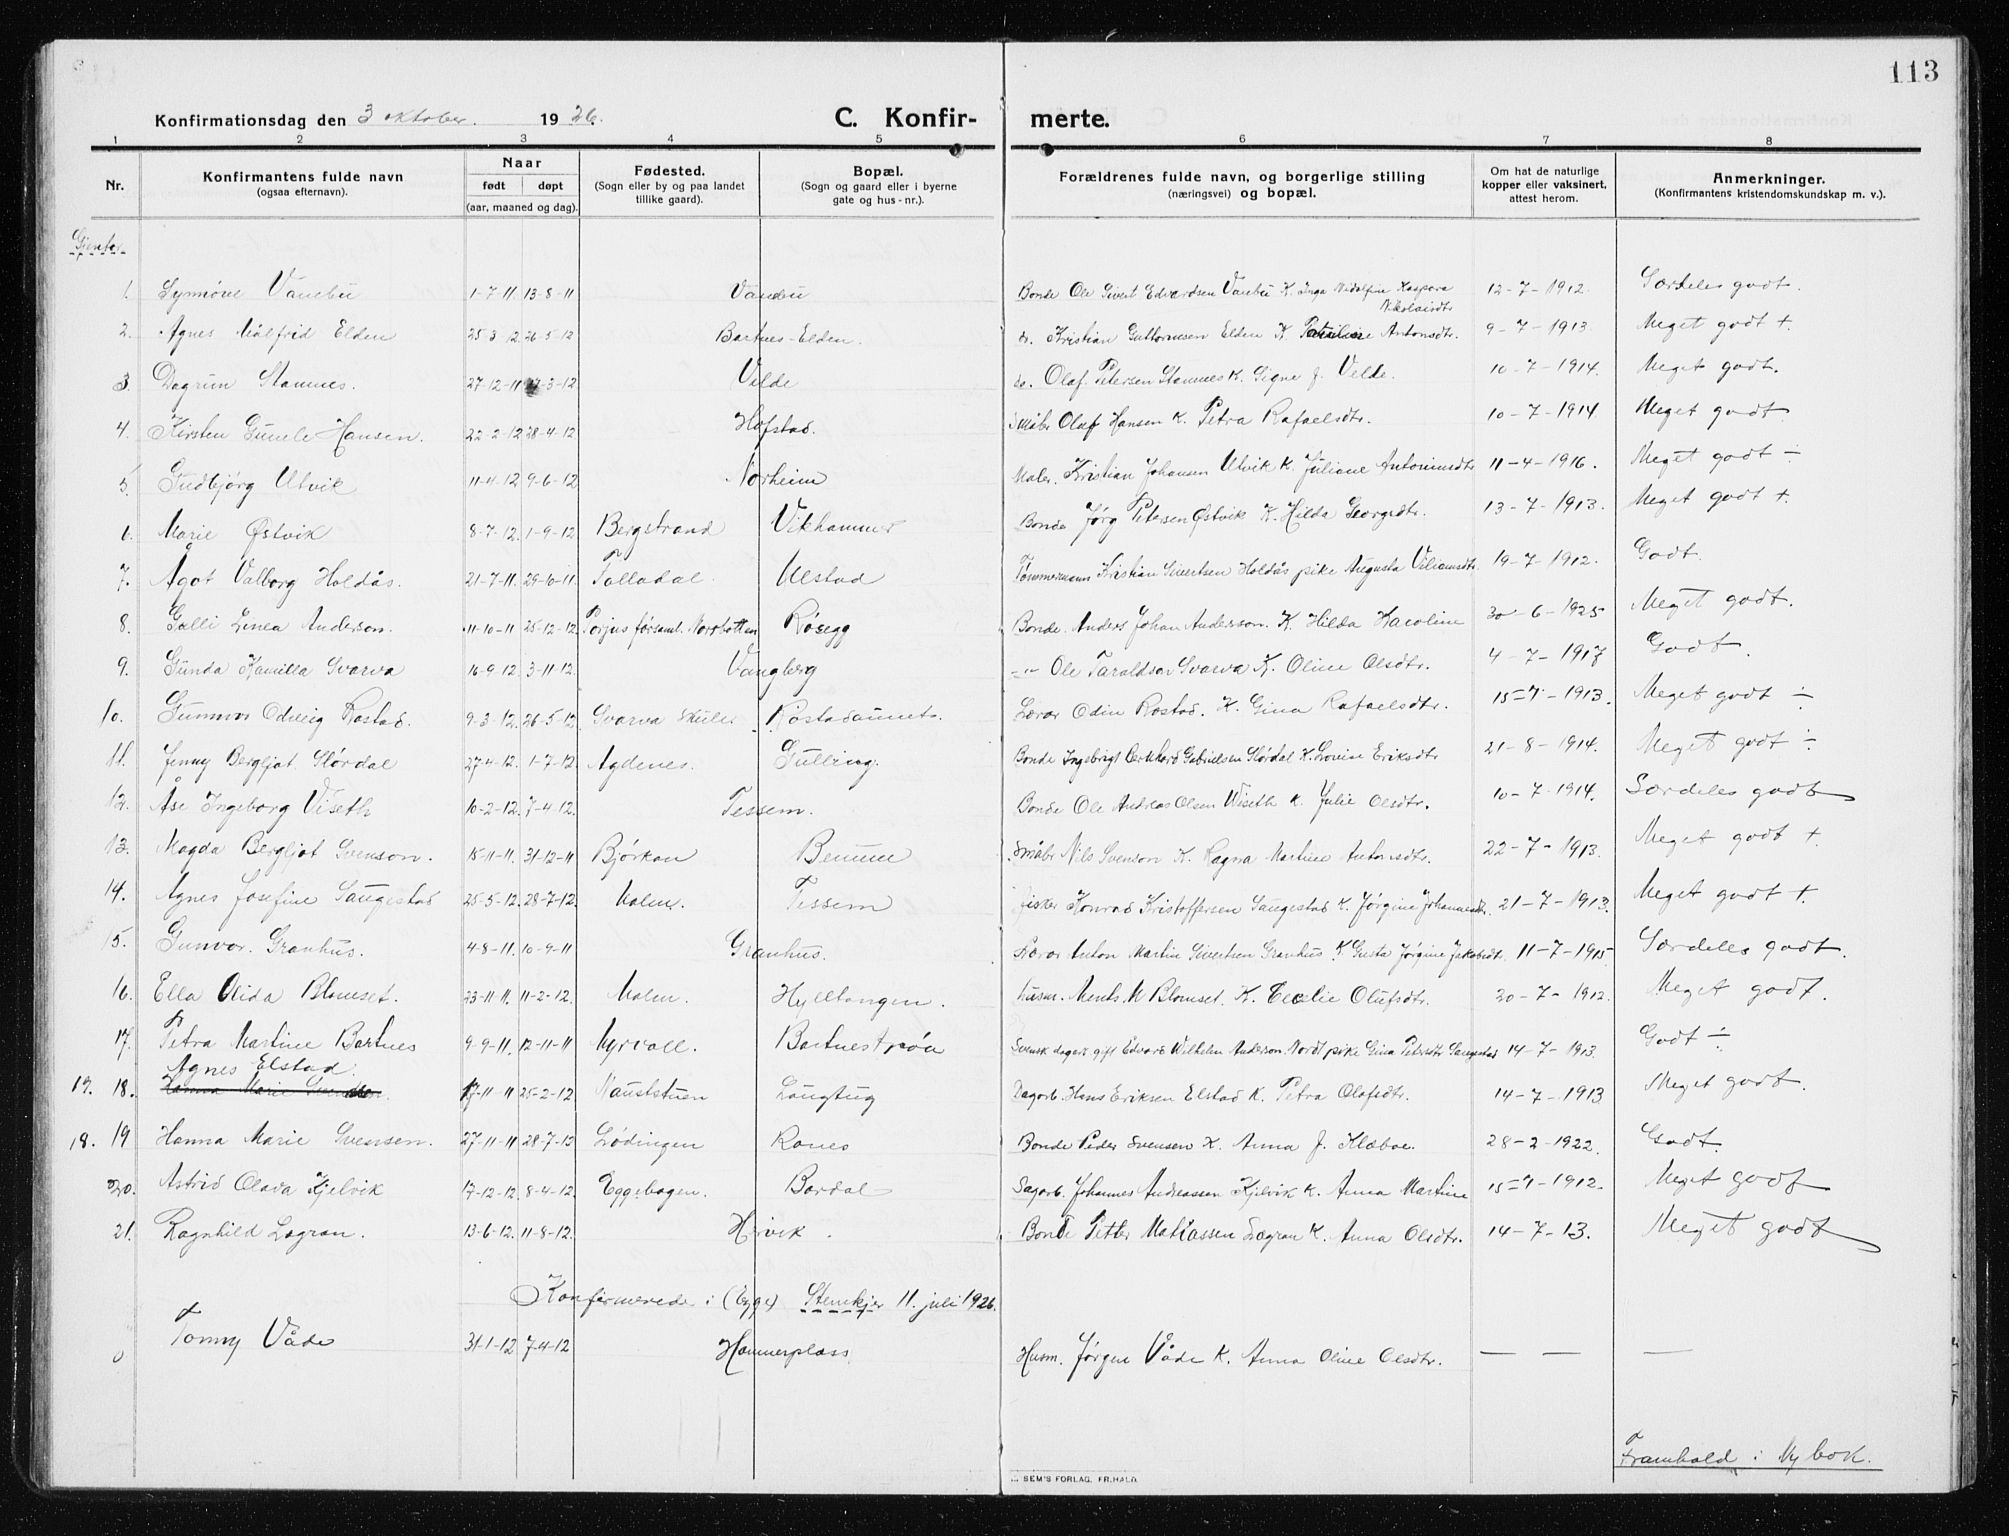 113
Konfirmationsdag den 3 oktober 1926. C. Konfir- merte.
1 2 3 4 5 6 7 8
Nr. Konfirmantens fulde navn (ogsaa efternavn). Naar født døpt (aar, maaned og dag). Fødested. (Sogn eller by og paa landet tillike gaard). Bopæl. (Sogn og gaard eller i byerne gate og hus-nr.). Forældrenes fulde navn, og borgerlige stilling (næringsvei) og bopæl. Om hat de naturlige kopper eller vaksinert, attest herom. Anmerkninger. (Konfirmantens kristendomskundskap m. v.).
Gjenter
1. Synnøve Vanebu 1-7-11. 13-8-11 Vanebu Bonde Ole Sivert Edvardsen Vanebu K. Inga Nikolaisdtr 12-7-1912. Særdeles godt.
2. Agnes Målfrid Elden 25-3-12. 26-5-12 Bartnes-Elden. Kristian Guttormsen Elden K. Antonsdtr. 9-7-1913. Meget godt +.
3. Dagrun Stamnes. 27-12-11 3-12 Velde do. Olaf Petersen Stamnes K. Signe J. Velde. 10-7-1914. Meget godt.
4. Kirsten Gunele Hansen. 22-2-12 28-4-12 Hofstad. Småbr Olaf Hansen K. Petra Rafaelsdtr. 10-7-1914 Meget godt
5. Gudbjørg Utvik 11-4-12 9-6-12 Norheim Maler. Kristian Johansen Utvik K. Juliane Antoniusdtr 11-4-1916. Meget godt ÷
6. Marie Østvik 8-7-12. 1-9-12 Bergstrand Vikhammer Bonde Jørg Petersen Østvik K. Hilda Georgsdtr. 13-7-1913. Meget godt +.
7. Ågot Valborg Holdås. 21-7-11. 29-10-11. Folladal. Ulstad Tømmermann Kristian Sivertsen Holdås pike Augusta Viliamsdtr. 19-7-1912. Godt
8. Gulli Linea Anderson. 11-10-11 25-12-12. Porjus församl. Norrbotten Røsegg Bonde. Anders Johan Anderson. K. Hilda Karoline 30-6-1925 Meget godt.
9. Gunda Kamilla Svarva 16-9-12. 3-11-12. Vangberg -"- Ole Taraldsen Svarva K. Oline Olsdtr. 4-7-1917 Godt.
10. Gunnvor Odveig Rostad. 9-3-12. 26-5-12 Svarva skule. Rostadaunet. Lærer Odin Rostad. K. Gina Rafaelsdtr. 15-7-1913. Meget godt ÷
11. Jenny Bergljot Slørdal 27-4-12. 1-7-12 Agdenes. Gulling. Bonde Ingebrigt Gabrielsen Slørdal K. Lovise Eriksdtr 21-8-1914. Meget godt ÷.
12. Åse Ingeborg Viseth 10-2-12. 7-4-12. Tessem. Bonde Ole Andreas Olsen Wiseth K. Julie Olsdtr. 10-7-1914. Særdeles godt
13. Magda Bergljot Svenson. 15-11-11. 31-12-11 Bjørkan Benum Småbr Nils Svenson K. Ragna Martine Antonsdtr. 22-7-1913. Meget godt +
14. Agnes Josefine Saugestad 25-5-12. 28-7-12. Malm. Tessem fisker Konrad Kristoffersen Saugestad K. Jørgine Johannesdtr. 21-7-1913. Meget godt +.
15. Gunvor Granhus. 4-8-11. 10-9-11 Granhus. Lærer Anton Martin Sivertsen Granhus K. Gusta Jørgine Jakobsdtr. 11-7-1915 Særdeles godt.
16. Ella Alida Blomset. 23-11-11. 11-2-12. Malm. Hylltangen. husm. Ments. M Blomset. K. Cecelie Olufsdtr. 20-7-1912. Meget godt.
17. Petra Martine Bartnes 9-9-11. 12-11-11 Myrvoll. Bartnestrøa Svensk dagarb. gift Edvard Wilhelm Anderson. Nordt pike Gina Petersdtr Saugestad 14-7-1913. Godt ÷
Agnes Elstad.
19. 18. Hanna Marie Svendsen 17-11-11 25-2-12. Nauststuen Langtug Dagarb. Hans Eriksen Elstad K. Petra Olafsdtr. 14-7-1913 Meget godt.
18. 19 Hanna Marie Svensen. 27-11-11 28-7-13 Lødingen Ranes Bonde Peder Svensen K. Anna J. Klæboe. 28-2-1922. Godt.
20. Astrid Olava Kjelvik 17-12-12. 8-4-12. Eggebogen. Bardal Sagarb. Johannes Andreassen Kjelvik K. Anna Martine 15-7-1912. Meget godt
21. Ragnhild Lagran. 13-6-12. 11-8-12. Hjevik. Bonde Petter Matiassen Lagran K. Anna Olsdtr. 14-7-13. Meget godt
Konfirmerede i (Egge) Stenkjer 11. juli 1926.
0 Tonny Våde 31-1-12 7-4-12 Hammerplass. Husm. Jørgen Våde K. Anna Oline Olsdtr. — — —
Framhald i Ny bok.
SEM'S FORLAG, FR.HALD.